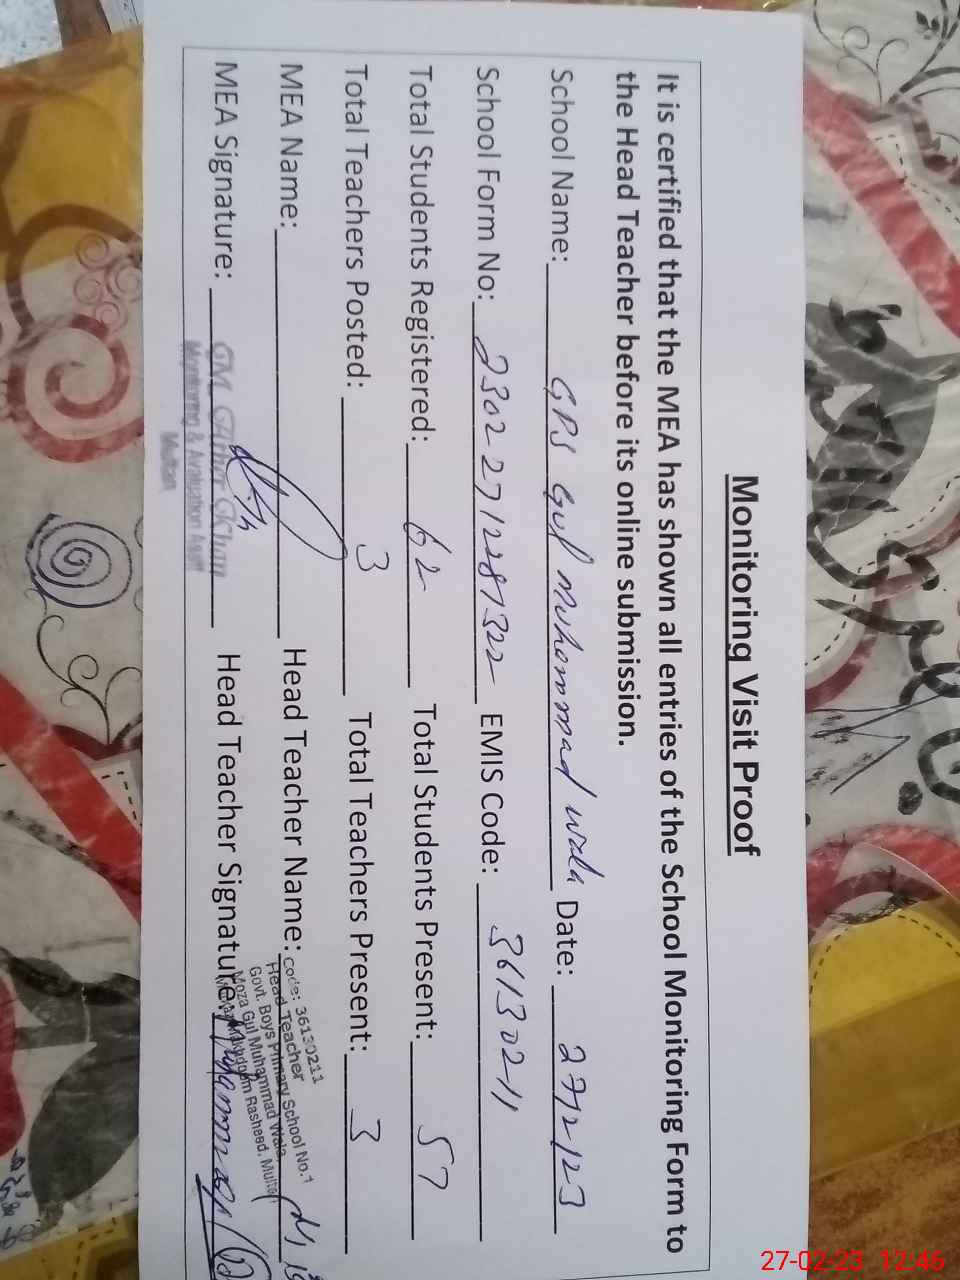 Monitoring Visit Proof
It is certified that the MEA has shown all entries of the School Monitoring Form to
the Head Teacher before its online submission.
School Name: GPS Gul Muhammad Wala Date: 27/2/23
School Form No: 2302271287322 EMIS Code: 36130211
Total Students Registered: 62 Total Students Present: 57
Total Teachers Posted: 3 Total Teachers Present: 3
MEA Name: Head Teacher Name:
MEA Signature: Head Teacher Signature:
Khan
Monitoring & Evaluation Asstt
Multan
Code: 36130211
Head Teacher
Govt. Boys Primary School No.1
Moza Gul Muhammad Wala,
Makhdoom Rasheed, Multan
27-02-23 12:46